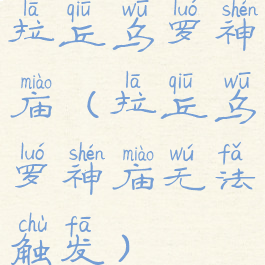 lā qiū wū luó shén
拉丘乌罗神
miào lā qiū wū
庙（拉丘乌
luó shén miào wú fǎ
罗神庙无法
chù fā
触发）